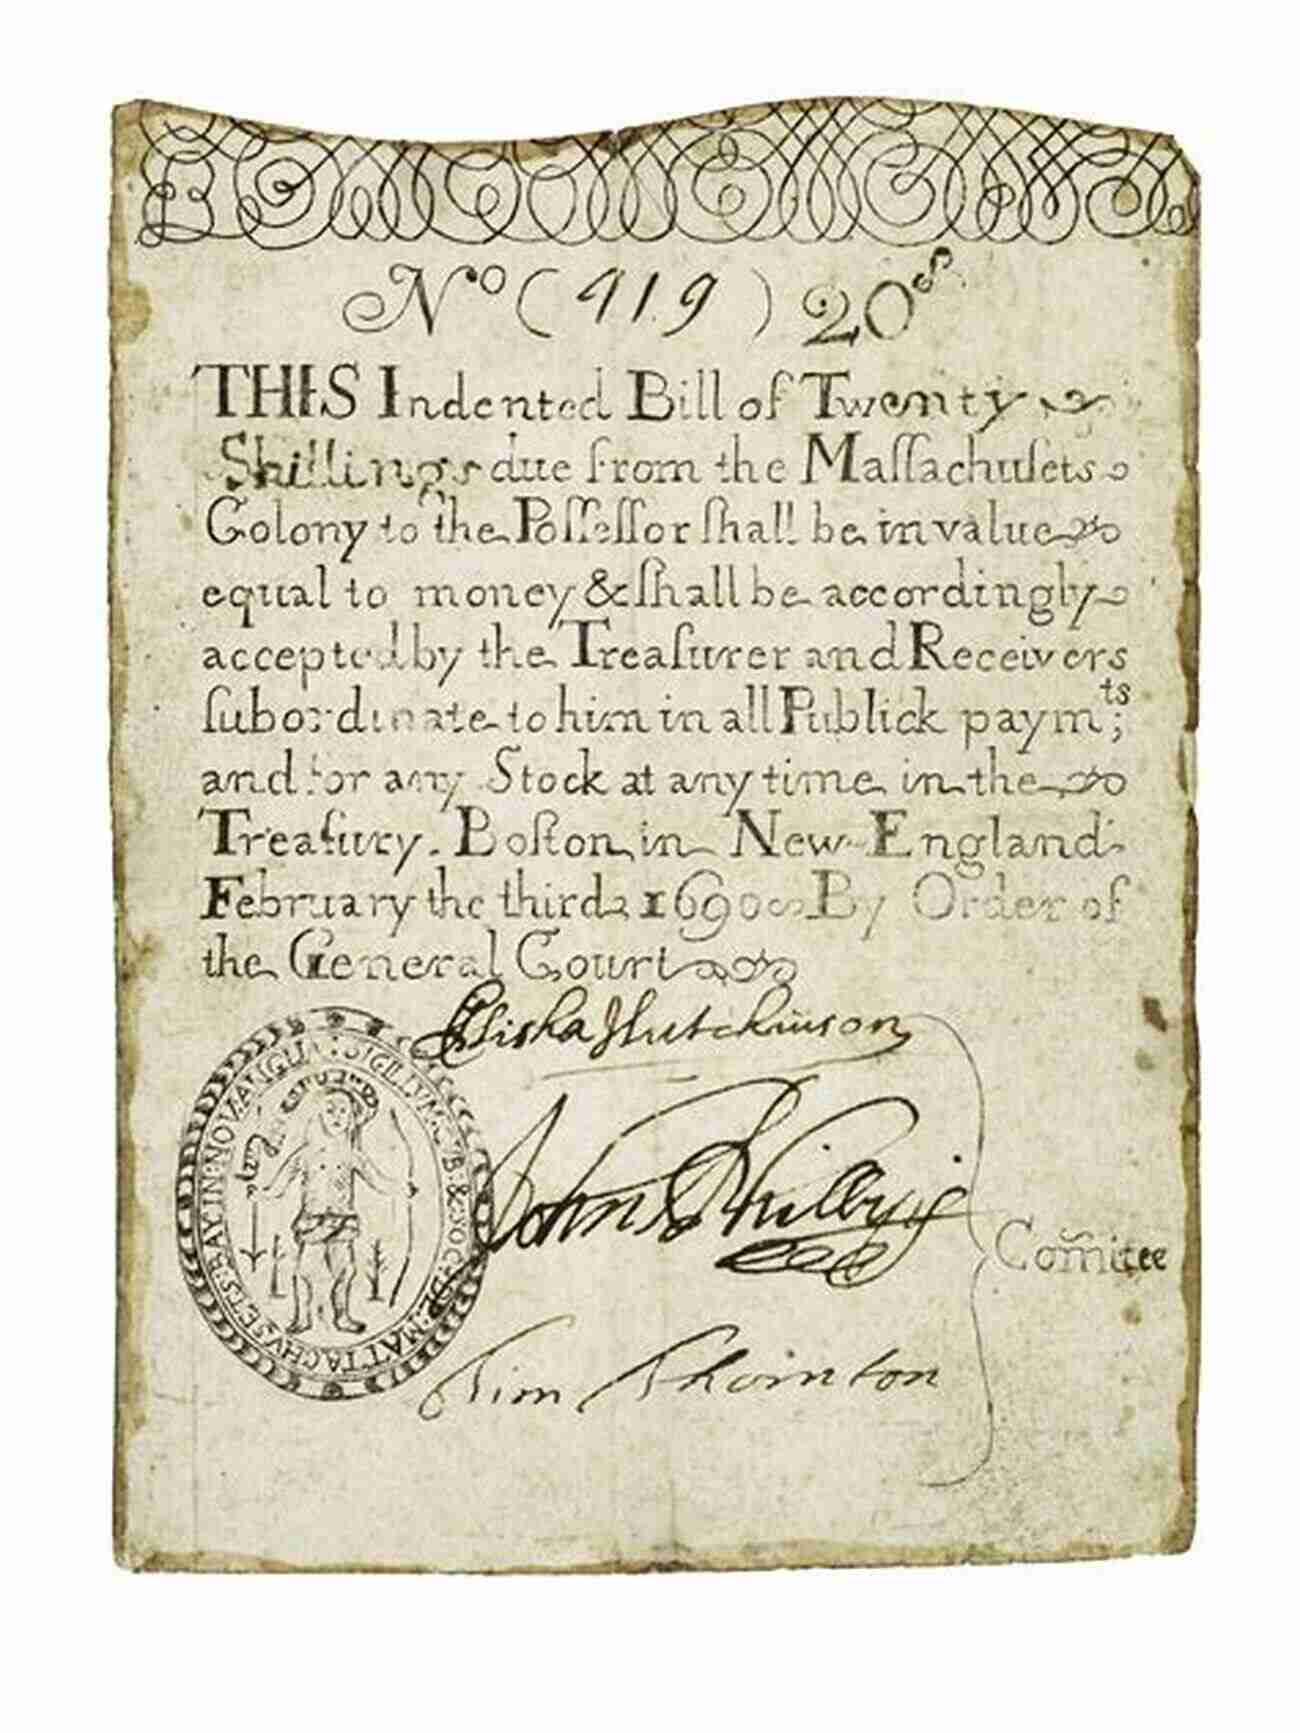 No (419) 20s
THIS Indented Bill of Twenty
Shillings due from the Maſſachuſets
Colony to the Poſſeſſor ſhall be in value
equal to money & ſhall be accordingly
accepted by the Treaſurer and Receivers
ſubordinate to him in all Publick paymts;
and for any Stock at any time in the
Treaſury. Boſton in New-England
February the third 1690 By Order of
the General Court
Elisha Hutchinson
John Phillips
Tim Thornton
Com̃itee
SIGILLUM: GUB: & SOC: DE: MATTACHVSETS: BAY: IN: NOV: ANGLIA: